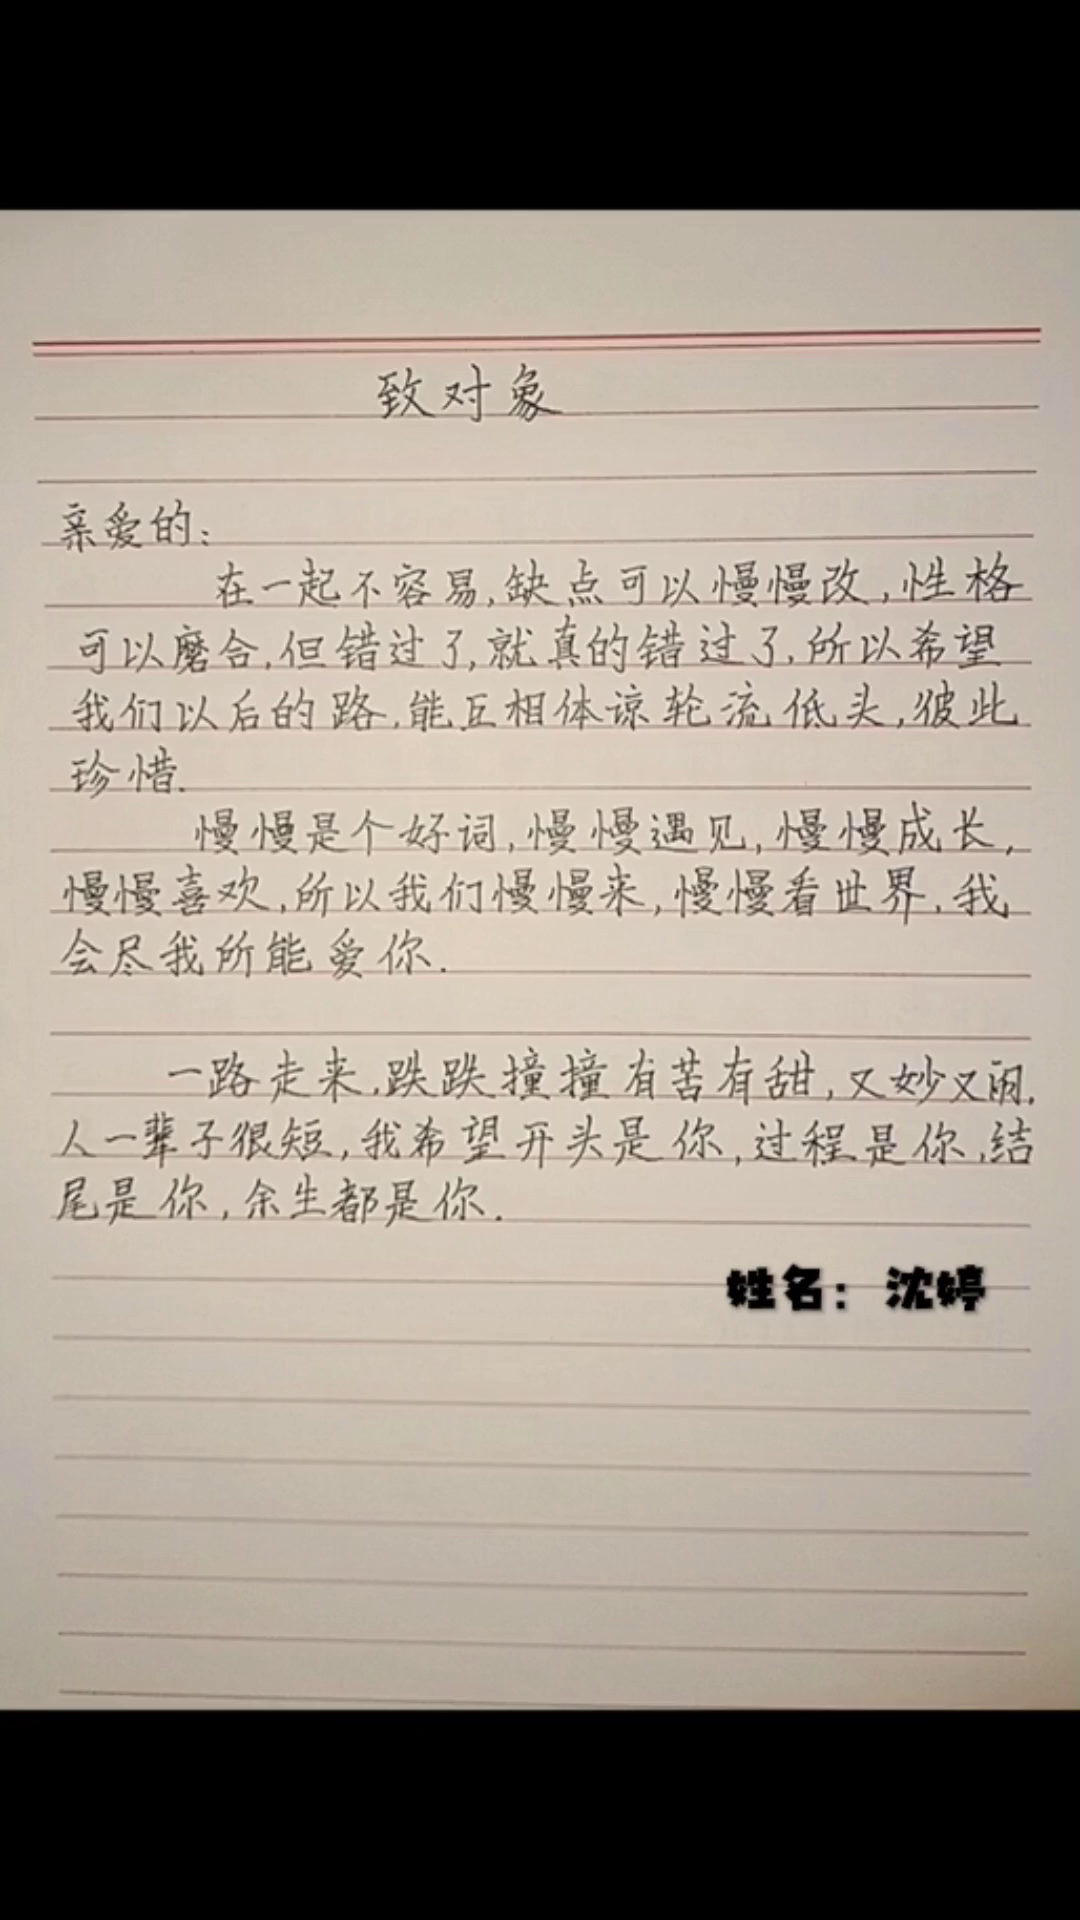 致对象
亲爱的:
在一起不容易,缺点可以慢慢改,性格
可以磨合,但错过了,就真的错过了.所以希望
我们以后的路.能互相体谅轮流低头,彼此
珍惜.
慢慢是个好词,慢慢遇见,慢慢成长,
慢慢喜欢,所以我们慢慢来,慢慢看世界.我
会尽我所能爱你.
一路走来.跌跌撞撞有苦有甜,又妙又丽.
人一辈子很短,我希望开头是你,过程是你.结
尾是你,余生都是你.
姓名: 沈婷